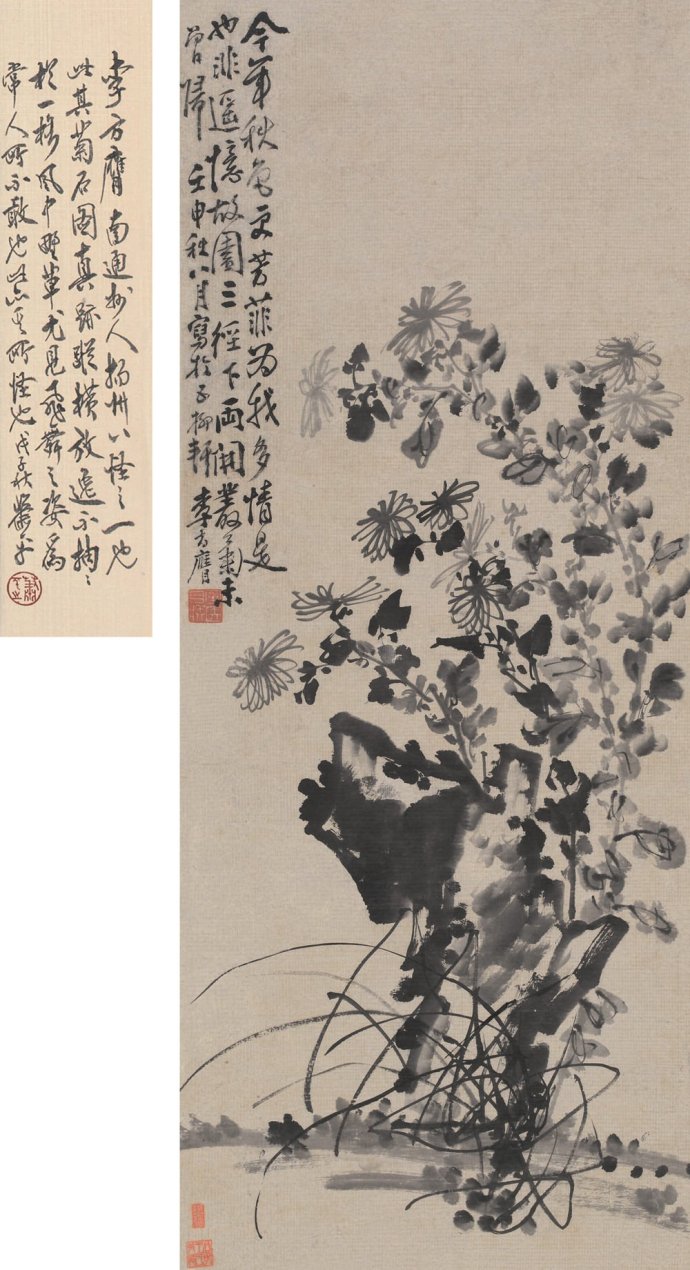 今年秋色更芳菲為我多情是
也非遥憶故園三徑下雨開叢菊未
曾歸 壬申秋八月寫於子柳軒 李方膺
李方膺南通州人揚州八怪之一也
此其菊石圖真跡縱橫放逸不拘
於一格風中野草尤見飛舞之姿為
常人所不敢也此亦其所怪也戊子秋